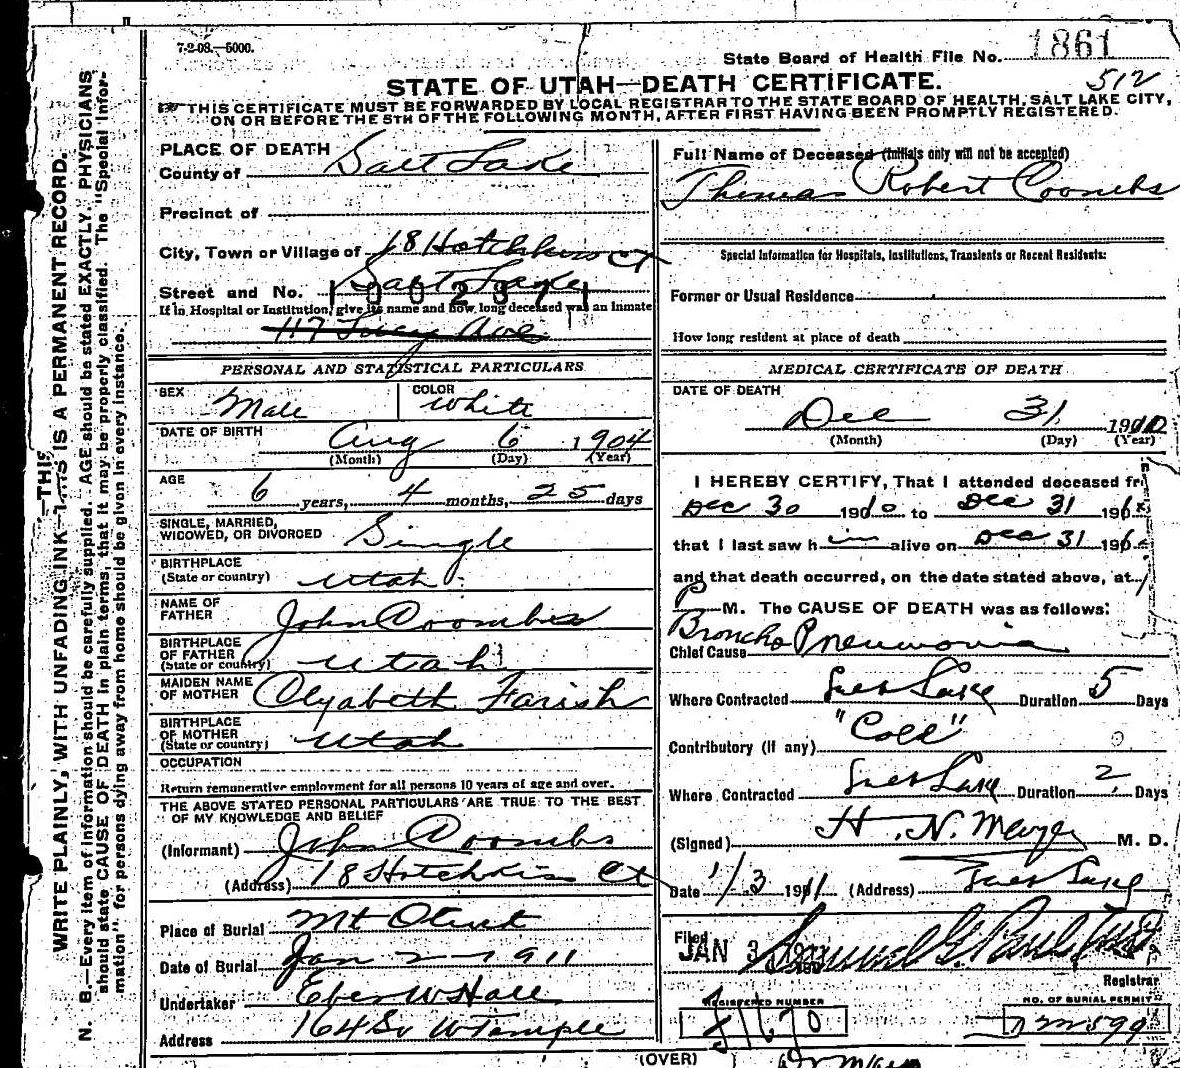 7-2-08.—5000.
State Board of Health File No. 1861
STATE OF UTAH—DEATH CERTIFICATE.
512
THIS CERTIFICATE MUST BE FORWARDED BY LOCAL REGISTRAR TO THE STATE BOARD OF HEALTH, SALT LAKE CITY,
ON OR BEFORE THE 5TH OF THE FOLLOWING MONTH, AFTER FIRST HAVING BEEN PROMPTLY REGISTERED.
WRITE PLAINLY, WITH UNFADING INK—THIS IS A PERMANENT RECORD.
N. B.—Every item of information should be carefully supplied. AGE should be stated EXACTLY. PHYSICIANS
should state CAUSE OF DEATH in plain terms, that it may be properly classified. The "Special Infor-
mation" for persons dying away from home should be given in every instance.
PLACE OF DEATH
County of Salt Lake
Precinct of
City, Town or Village of 18 Hotchkiss Ct
Salt Lake
Street and No. 1002371
If in Hospital or Institution, give its name and how long deceased was an inmate
117 Lucy Ave
PERSONAL AND STATISTICAL PARTICULARS
SEX Male COLOR White
DATE OF BIRTH Aug 6 1904
(Month) (Day) (Year)
AGE 6 years, 4 months, 25 days
SINGLE, MARRIED,
WIDOWED, OR DIVORCED Single
BIRTHPLACE
(State or country) Utah
NAME OF
FATHER John Coombs
BIRTHPLACE
OF FATHER
(State or country) Utah
MAIDEN NAME
OF MOTHER Elyabeth Farish
BIRTHPLACE
OF MOTHER
(State or country) Utah
OCCUPATION
Return remunerative employment for all persons 10 years of age and over.
THE ABOVE STATED PERSONAL PARTICULARS ARE TRUE TO THE BEST
OF MY KNOWLEDGE AND BELIEF
(Informant) John Coombs
(Address) 18 Hotchkiss Ct
Place of Burial Mt Olivet
Date of Burial Jan 2 - 1911
Undertaker Eber W Hall
Address 164 So W Temple
Full Name of Deceased (Initials only will not be accepted)
Thomas Robert Coombs
Special Information for Hospitals, Institutions, Transients or Recent Residents:
Former or Usual Residence
How long resident at place of death
MEDICAL CERTIFICATE OF DEATH
DATE OF DEATH
Dec 31 1910
(Month) (Day) (Year)
I HEREBY CERTIFY, That I attended deceased fr
Dec 30 1910 to Dec 31 191
that I last saw him alive on Dec 31 191
and that death occurred, on the date stated above, at
P M. The CAUSE OF DEATH was as follows:
Chief Cause Broncho Pneumonia
Where Contracted Salt Lake Duration 5 Days
Contributory (if any) "Cold"
Where Contracted Salt Lake Duration 2 Days
(Signed) H. N. M. D.
Date 1/3 1911 (Address) Salt Lake
Filed JAN 3 1911
Registrar
REGISTERED NUMBER
NO. OF BURIAL PERMIT
(OVER)